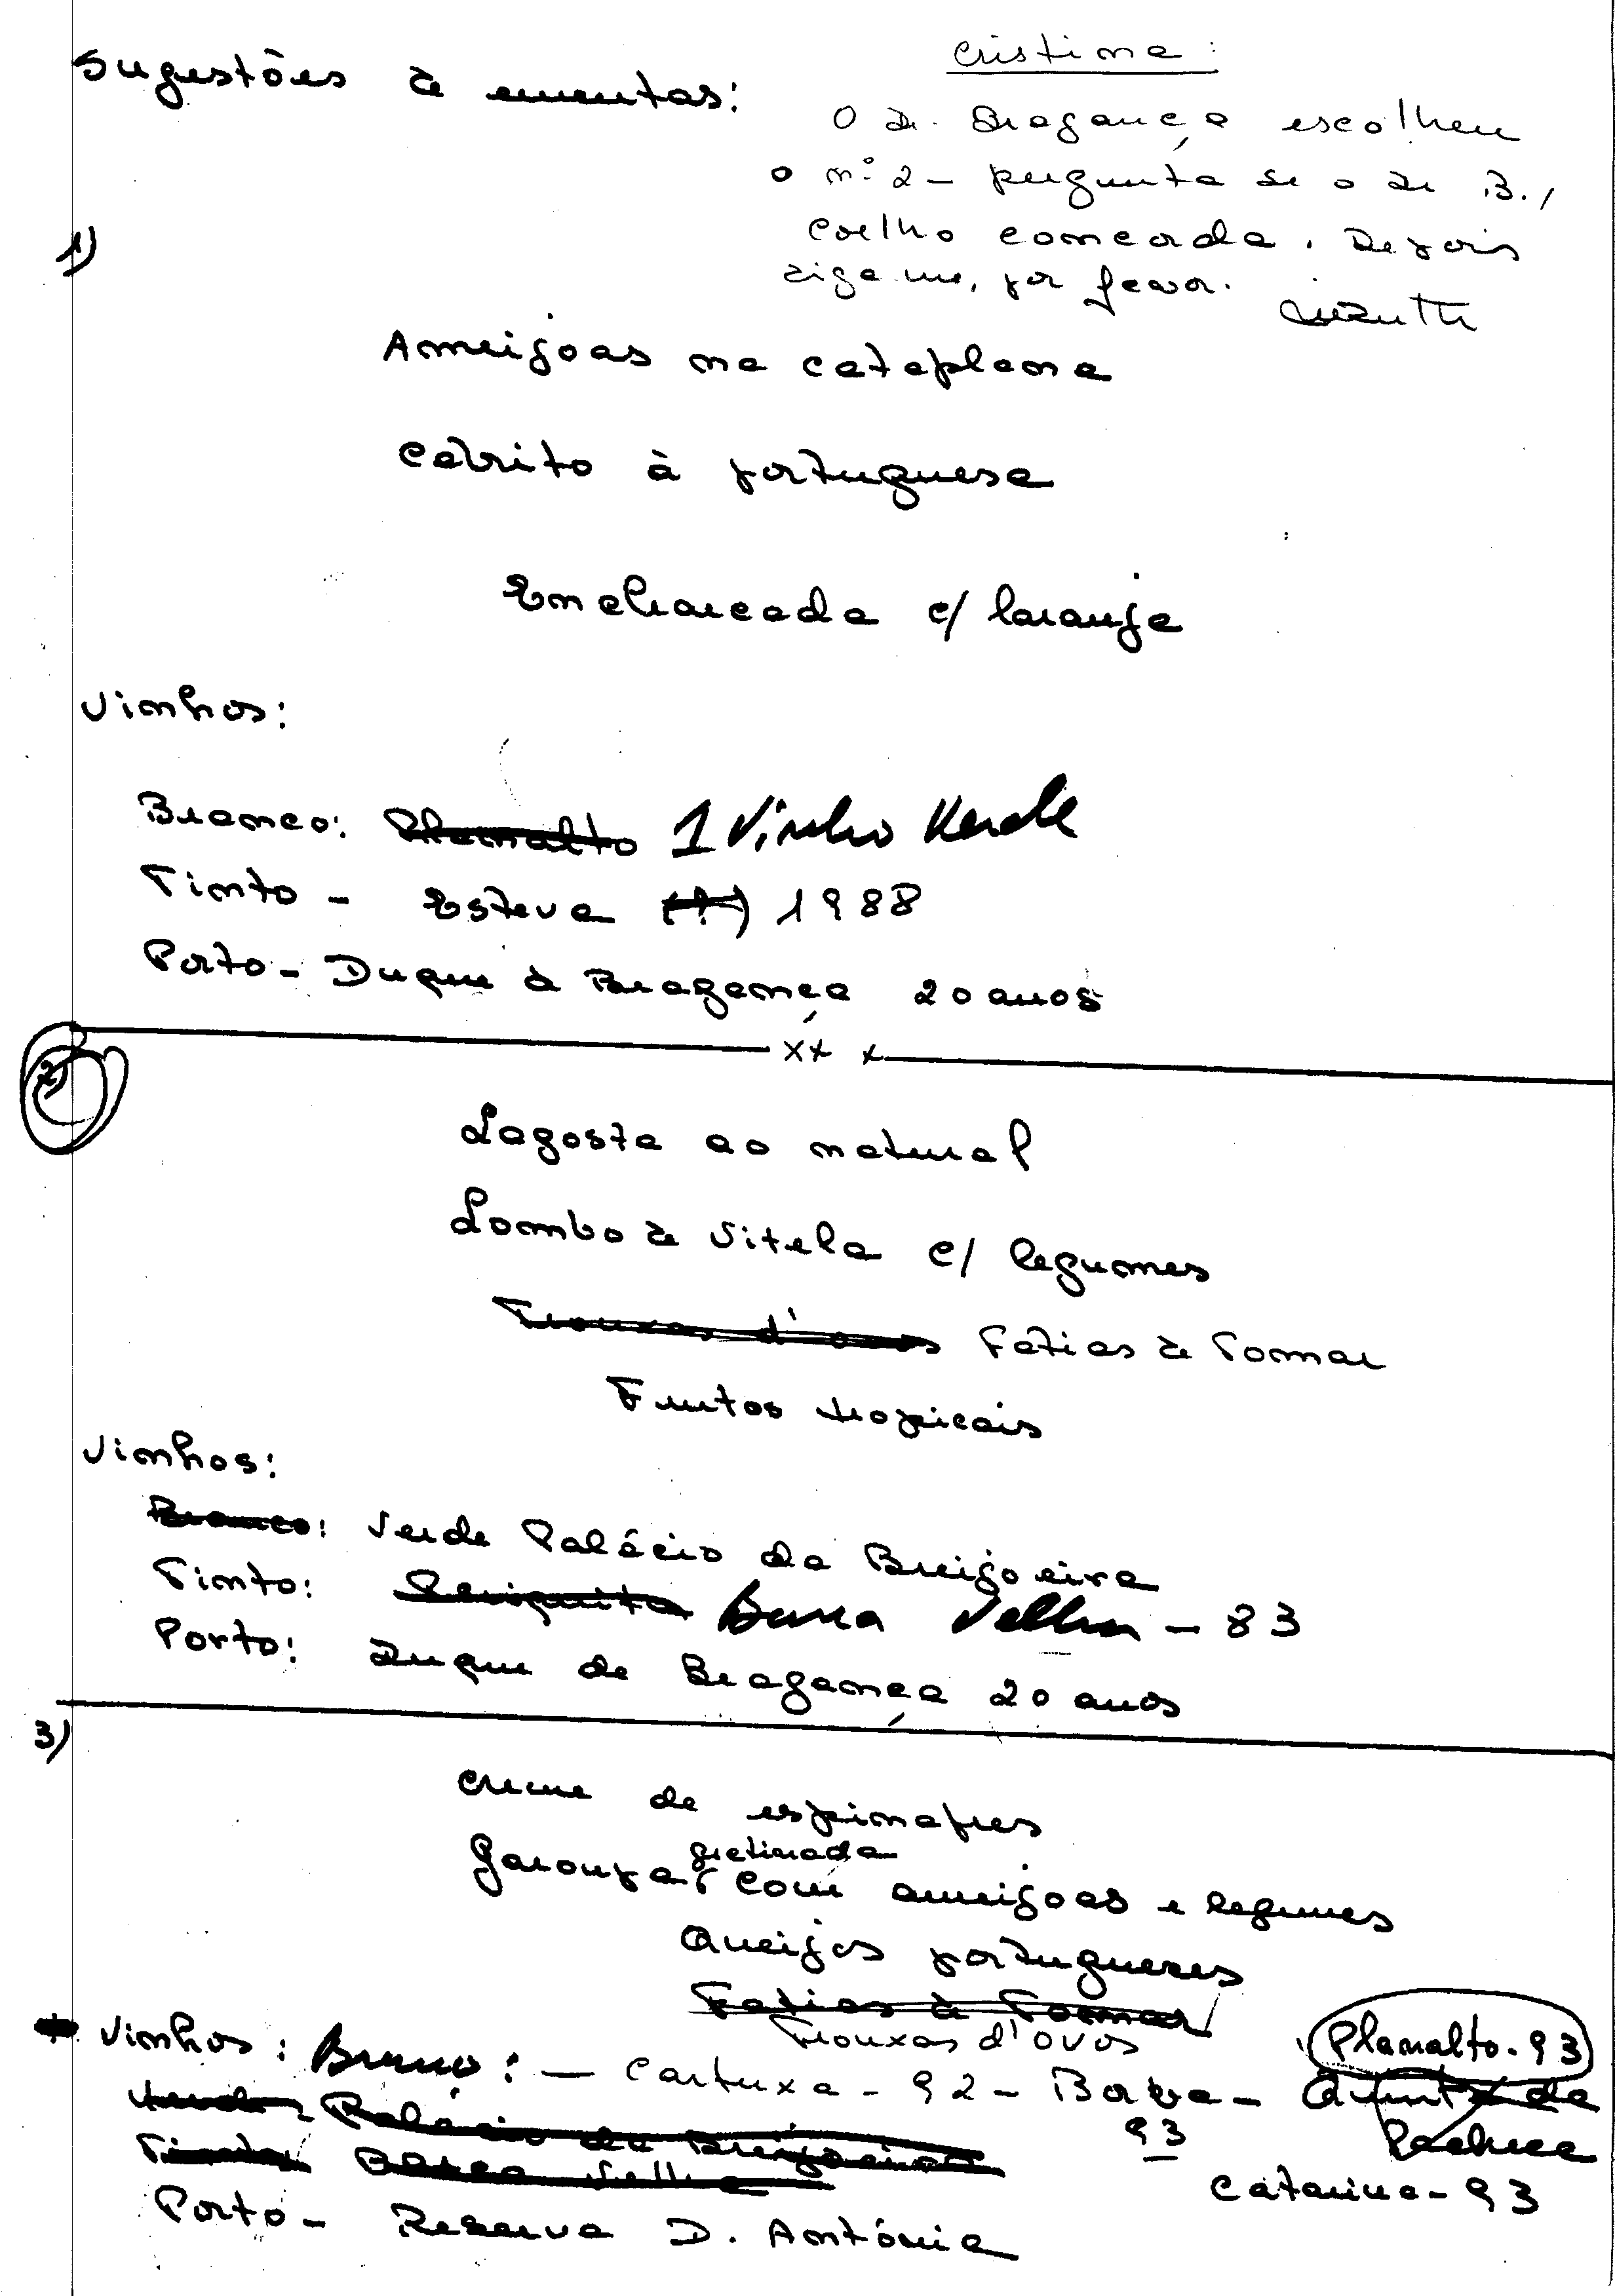 Sugestões de ementas:
Cristina:
O Dr. Bragança escolheu
o nº 2 - pergunta se o Dr. B.,
Coelho concorda. Depois
diga-me, por favor.
1)
Ameijoas na cataplana
Cabrito à portuguesa
Encharcada c/ laranja
Vinhos:
Branco: Planalto 1 Vinho Verde
Tinto - Esteva (?) 1988
Porto - Duque de Bragança 20 anos
xx x
2)
Lagosta ao natural
Lombo de vitela c/ legumes
Trouxas d'ovos Fatias de Tomar
Frutos tropicais
Vinhos:
Branco: Verde Palácio da Breijoeira
Tinto: Periquita Barca Velha - 83
Porto: Duque de Bragança 20 anos
3)
Creme de espinafres
gratinada
Garoupa com ameijoas e legumes
Queijos portugueses
Fatias de Tomar
Trouxas d'ovos
Planalto - 93
Vinhos: Branco: - Cartuxa - 92 - Borba - Quinta da
93 Pacheca
Verde: Palácio da Breijoeira
Tinto: Barca Velha
Catarina - 93
Porto - Reserva D. Antónia